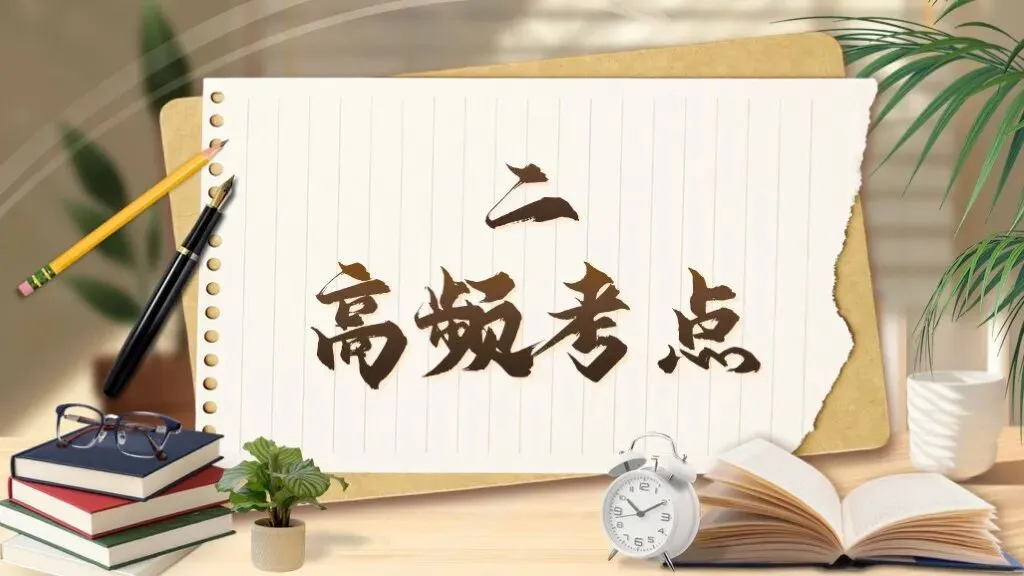 二
高频考点